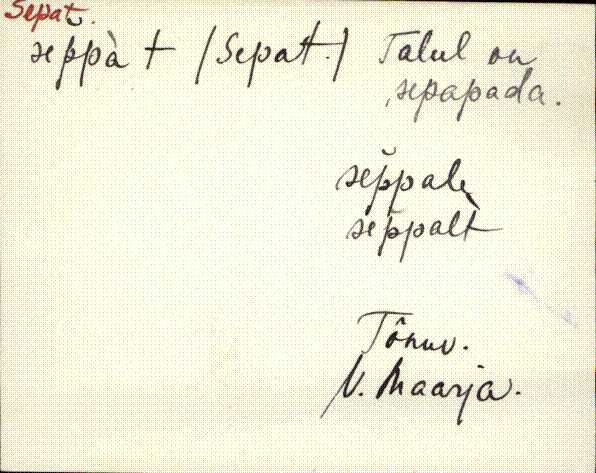 Sepat.
sep̆p̆à t (Sepat.) Talul on
sepapada.
sep̆pale
sep̆palt
Tõnuv.
V. Maarja.